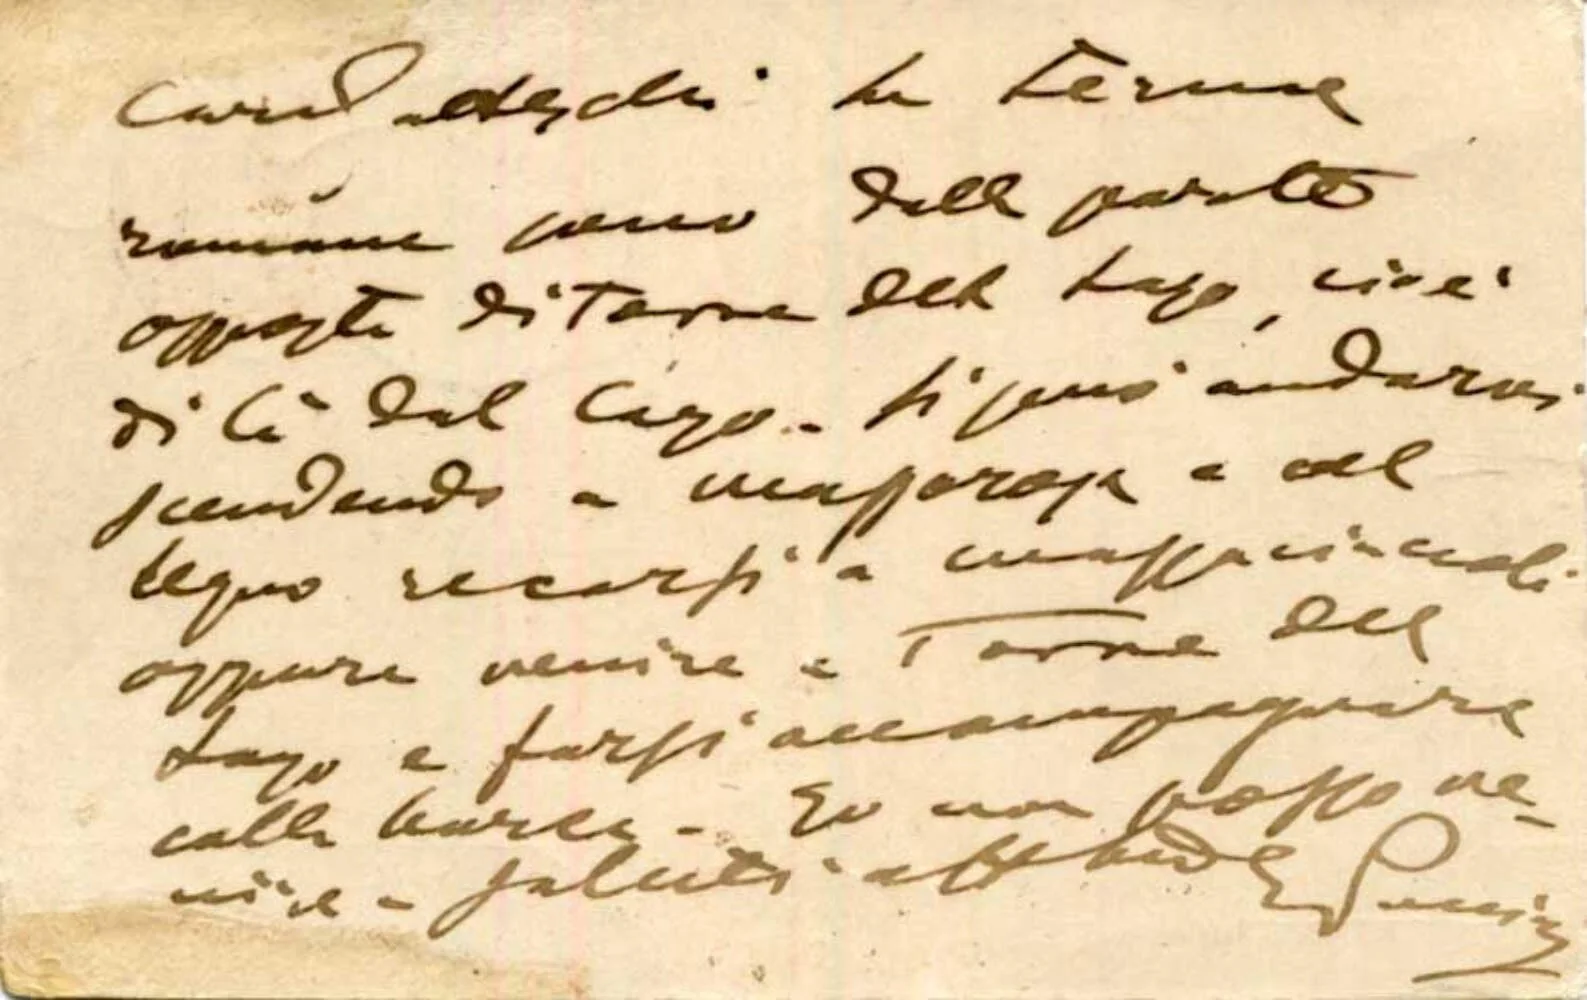 Caro le Terme
romane sono dalla parte
opposta di Torre del Lago, cioè
di là dal lago - Si può andarvi
scendendo a Massarosa e al
legno recarsi a Massaciuccoli
oppure venire a Torre del
Lago e farsi accompagnare
colla barca - Io non posso ve-
nire - saluti aff GPuccini